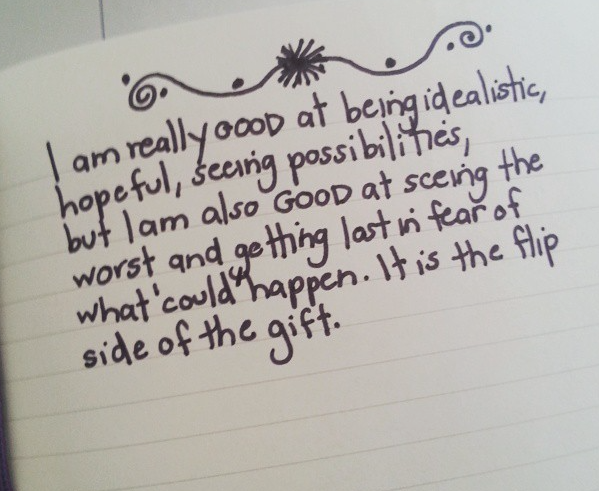 I am really GOOD at being idealistic,
hopeful, seeing possibilities,
but I am also GOOD at sceing the
worst and getting last in fear of
what 'could" happen. It is the flip
side of the gift.